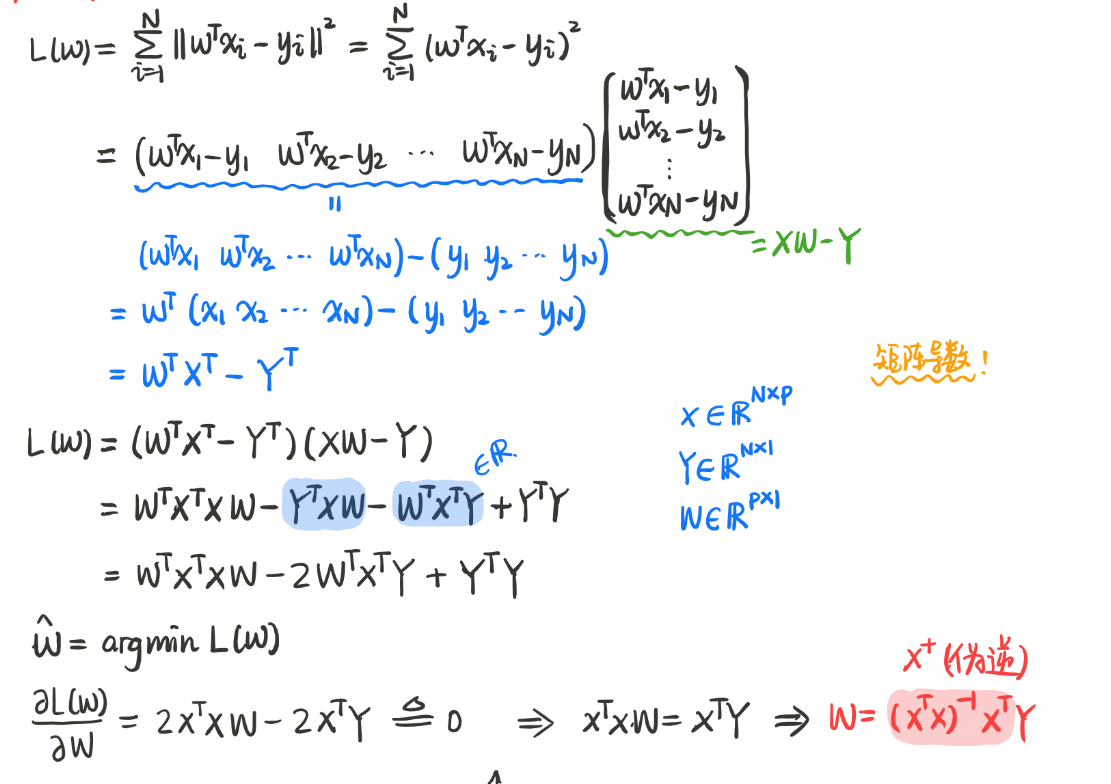 L(w) = Σ_{i=1}^{N} ||wᵀxᵢ - yᵢ||² = Σ_{i=1}^{N} (wᵀxᵢ - yᵢ)²
= (wᵀx₁-y₁ wᵀx₂-y₂ ⋯ wᵀx_N-y_N) (wᵀx₁-y₁ wᵀx₂-y₂ ⋮ wᵀx_N-y_N)
=
= XW-Y
(wᵀx₁ wᵀx₂ ⋯ wᵀx_N) - (y₁ y₂ ⋯ y_N)
= wᵀ (x₁ x₂ ⋯ x_N) - (y₁ y₂ ⋯ y_N)
= wᵀXᵀ - Yᵀ
矩阵导数!
X∈ℝ^{N×p}
Y∈ℝ^{N×1}
W∈ℝ^{p×1}
L(w) = (wᵀXᵀ - Yᵀ)(XW-Y)
∈ℝ.
= WᵀXᵀXW - YᵀXW - WᵀXᵀY + YᵀY
= WᵀXᵀXW - 2WᵀXᵀY + YᵀY
ŵ = argmin L(w)
X⁺ (伪逆)
∂L(w)/∂W = 2XᵀXW - 2XᵀY ≜ 0 ⇒ XᵀXW = XᵀY ⇒ W = (XᵀX)⁻¹XᵀY